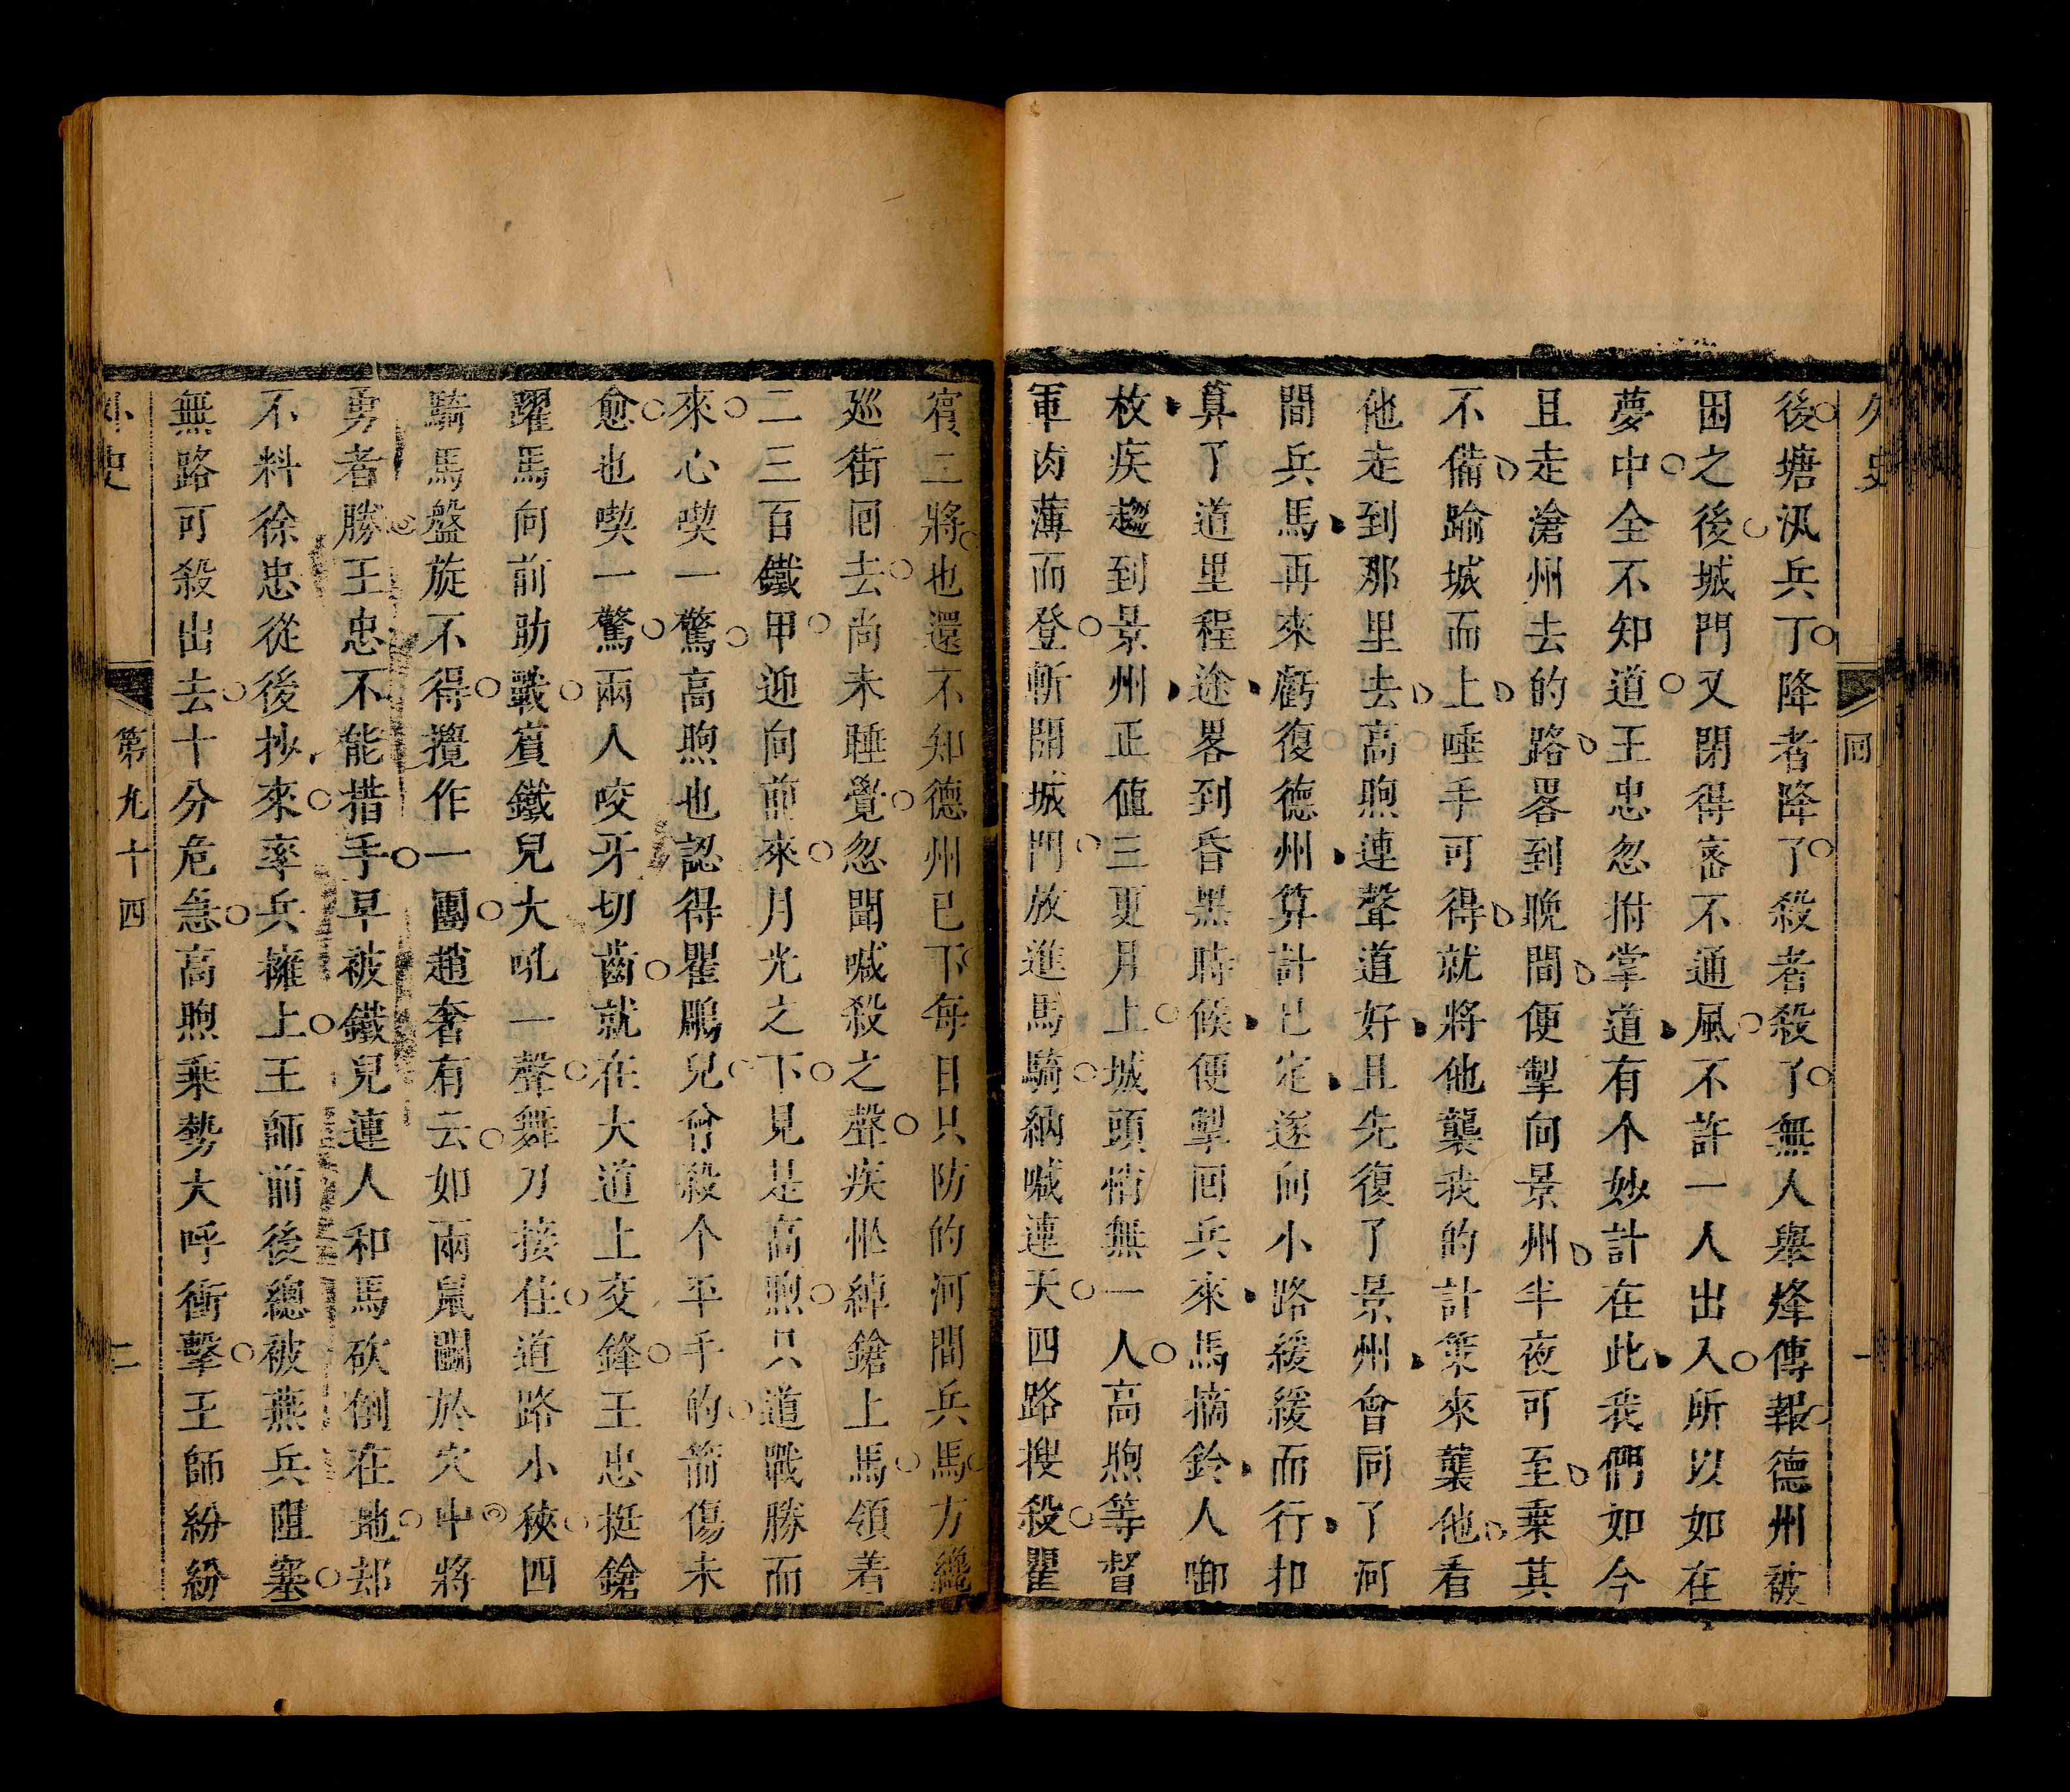 外史
回
一
後塘汛兵丁降者降了殺者殺了無人舉烽傳報德州被
困之後城門又閉得密不通風不許一人出入所以如在
夢中全不知道王忠忽拊掌道有个妙計在此我們如今
且走滄州去的路畧到晚間便掣向景州半夜可至乗其
不備踰城而上唾手可得就將他襲我的計策來襲他看
他走到那里去高煦連聲道好且先復了景州會同了河
間兵馬再來虧復德州算計已定遂向小路緩緩而行扣
算了道里程途畧到昏黑時候便掣回兵來馬摘鈴人啣
枚疾趨到景州正值三更月上城頭悄無一人高煦等督
軍肉薄而登斬開城門放進馬騎納喊連天四路搜殺瞿
賓二將也還不知德州已下每日只防的河間兵馬方纔
廵街回去尚未睡覺忽聞喊殺之聲疾忙綽鎗上馬領着
二三百鐵甲迎向前來月光之下見是高煦只道戰勝而
來心喫一驚高煦也認得瞿鵰兒曾殺个平手的箭傷未
愈也喫一驚兩人咬牙切齒就在大道上交鋒王忠挺鎗
躍馬向前助戰賓鐵兒大吼一聲舞刀接住道路小狹四
騎馬盤旋不得攪作一團趙奢有云如兩鼠鬭於穴中將
勇者勝王忠不能措手早被鐵兒連人和馬砍倒在地却
不料徐忠從後抄來率兵擁上王師前後總被燕兵阻塞
無路可殺出去十分危急高煦乗勢大呼衝擊王師紛紛
外史
第九十四
二